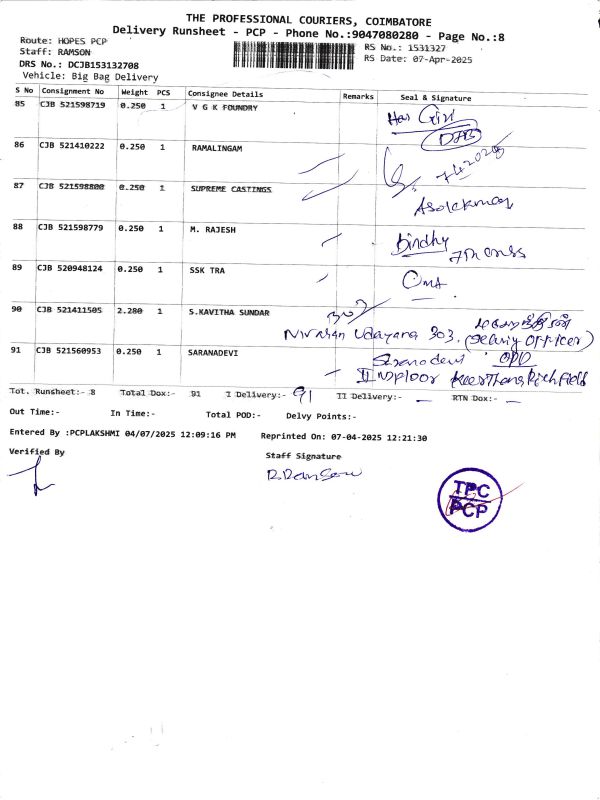 THE PROFESSIONAL COURIERS, COIMBATORE
Delivery Runsheet - PCP - Phone No.:9047080280 - Page No.:8
Route: HOPES PCP
RS No.: 1531327
Staff: RAMSON
RS Date: 07-Apr-2025
DRS No.: DCJB153132708
Vehicle: Big Bag Delivery
S No Consignment No Weight PCS Consignee Details Remarks Seal & Signature
85 CJB 521598719 0.250 1 V G K FOUNDRY
86 CJB 521410222 0.250 1 RAMALINGAM
87 CJB 521598800 0.250 1 SUPREME CASTINGS
88 CJB 521598779 0.250 1 M. RAJESH
Bindhy
89 CJB 520948124 0.250 1 SSK TRA
90 CJB 521411505 2.280 1 S.KAVITHA SUNDAR
Udayana 303.
91 CJB 521560953 0.250 1 SARANADEVI
Saranadevi
Tot. Runsheet:- 8 Total Dox:- 91 I Delivery:- 91 II Delivery:- — RTN Dox:- —
Out Time:- In Time:- Total POD:- Delvy Points:-
Entered By :PCPLAKSHMI 04/07/2025 12:09:16 PM Reprinted On: 07-04-2025 12:21:30
Verified By Staff Signature
TPC
PCP